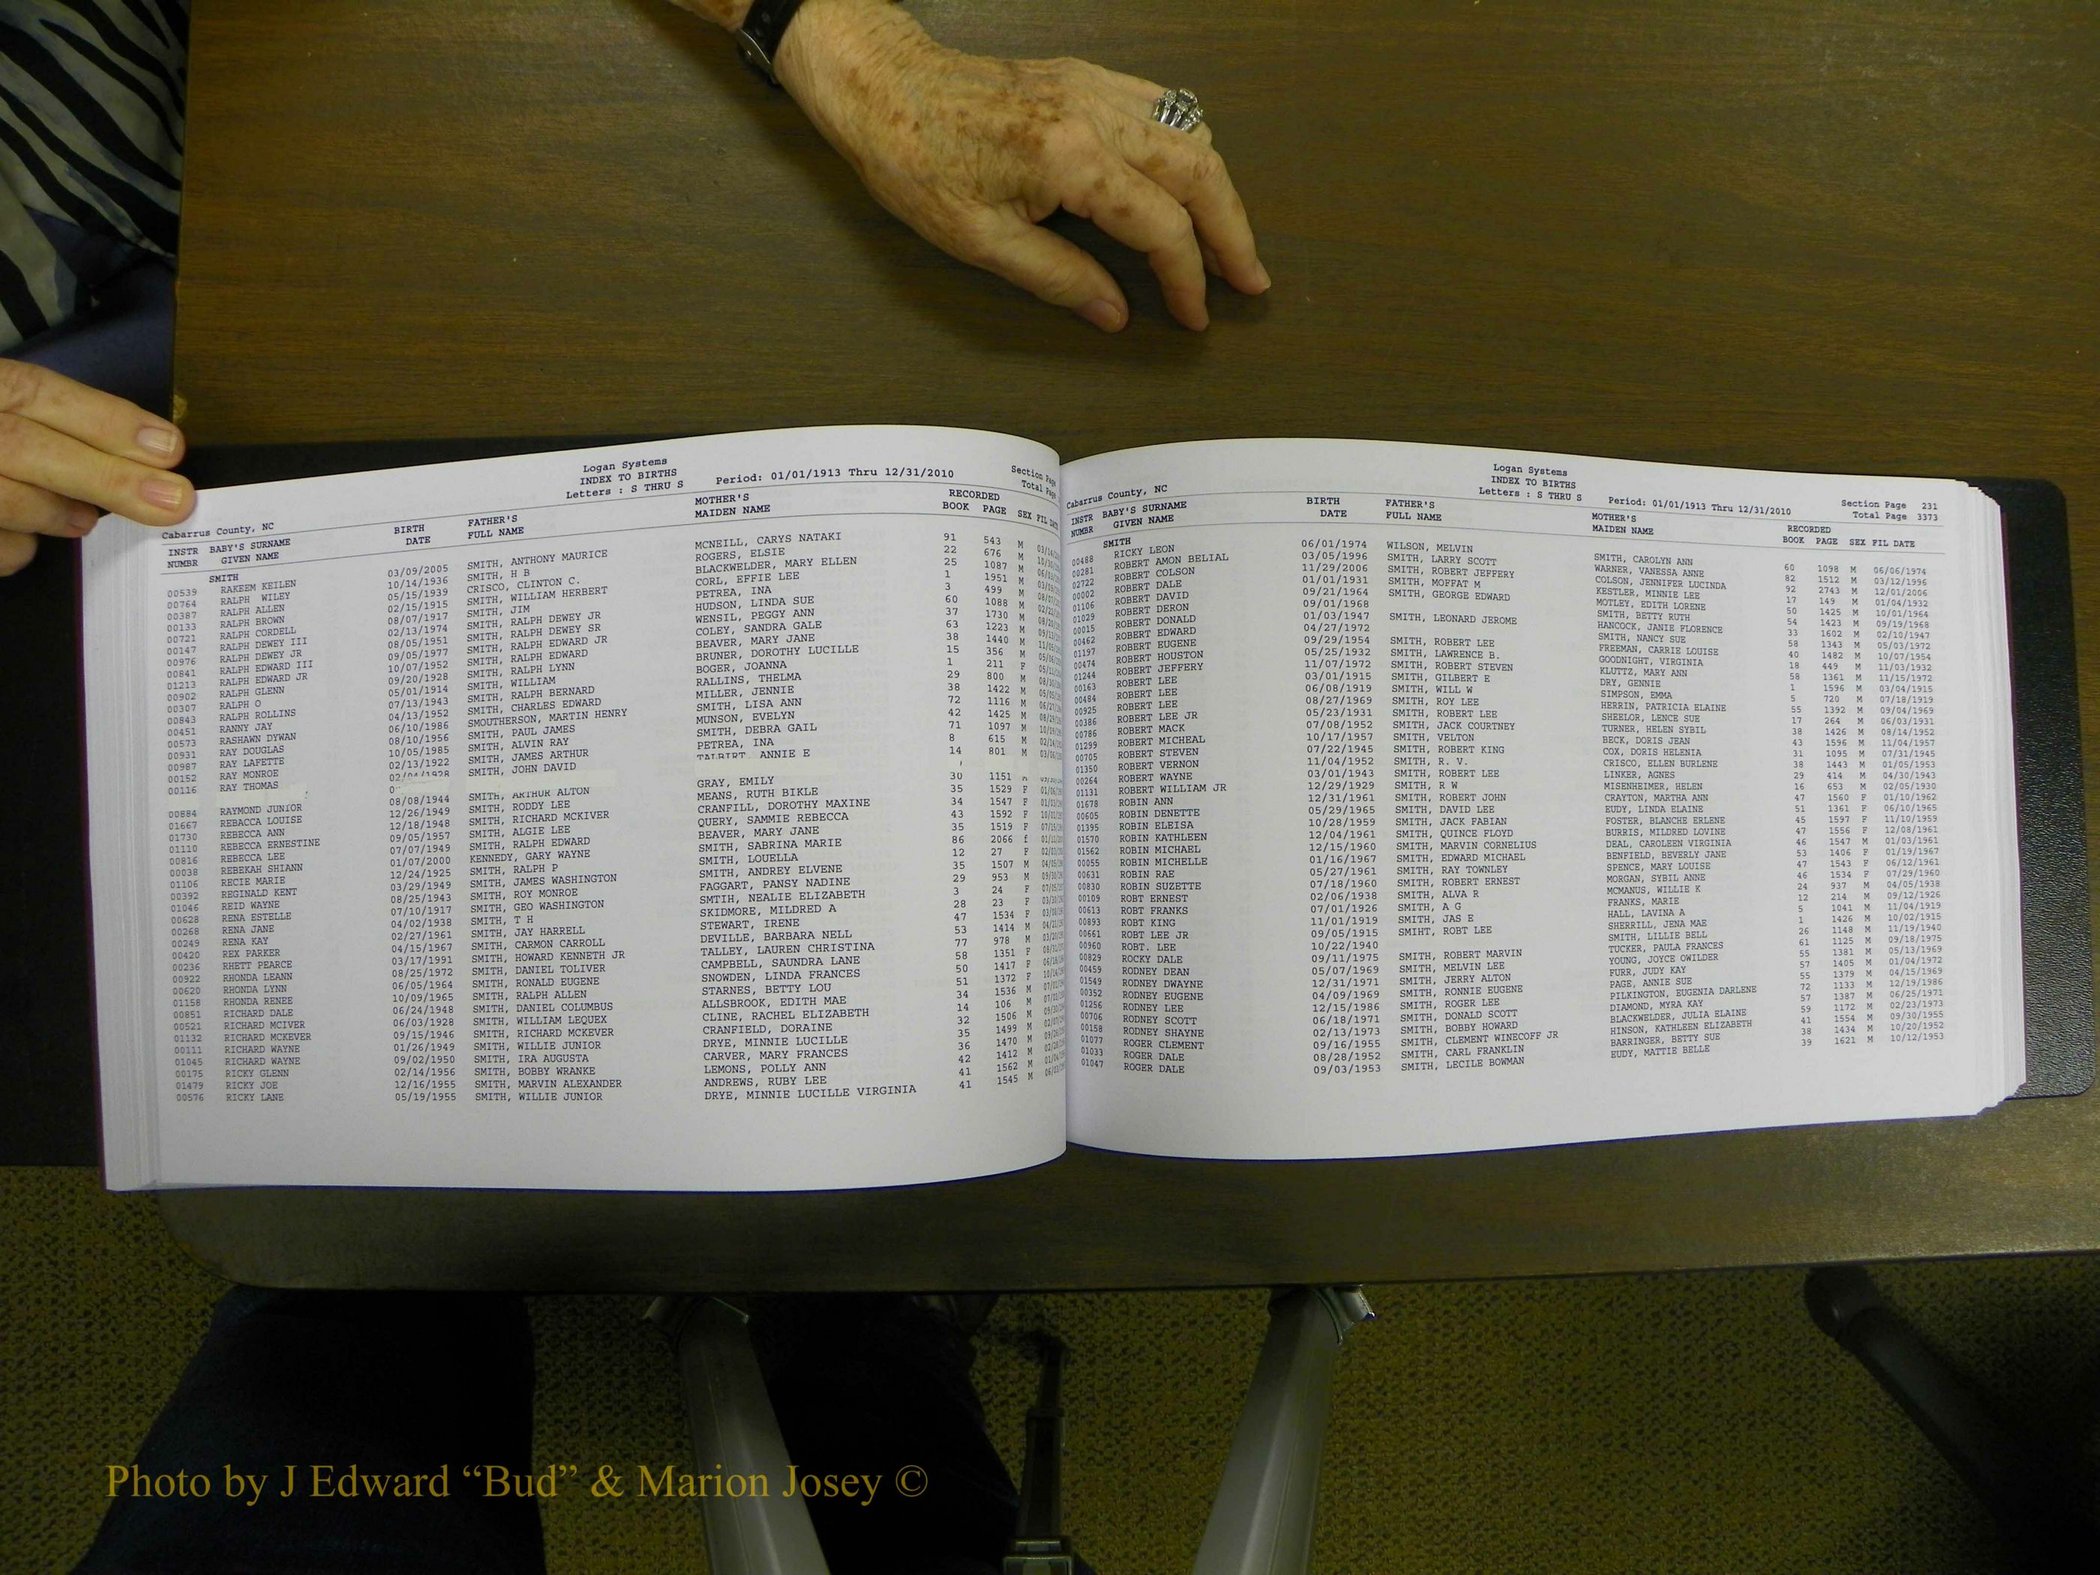 Logan Systems
INDEX TO BIRTHS
Cabarrus County, NC Letters : S THRU S Period: 01/01/1913 Thru 12/31/2010 Section Page
Total Page
INSTR BABY'S SURNAME BIRTH FATHER'S MOTHER'S RECORDED
NUMBR GIVEN NAME DATE FULL NAME MAIDEN NAME BOOK PAGE SEX FIL DATE
SMITH
00539 RAKEEM KEILEN 03/09/2005 SMITH, ANTHONY MAURICE MCNEILL, CARYS NATAKI 91 543 M
00764 RALPH WILEY 10/14/1936 SMITH, H B ROGERS, ELSIE 22 676 M
00387 RALPH ALLEN 05/15/1939 CRISCO, CLINTON C. BLACKWELDER, MARY ELLEN 25 1087 M
00133 RALPH BROWN 02/15/1915 SMITH, WILLIAM HERBERT CORL, EFFIE LEE 1 1951 M
00721 RALPH CORDELL 08/07/1917 SMITH, JIM PETREA, INA 3 499 M
00147 RALPH DEWEY III 02/13/1974 SMITH, RALPH DEWEY JR HUDSON, LINDA SUE 60 1088 M
00976 RALPH DEWEY JR 08/05/1951 SMITH, RALPH DEWEY SR WENSIL, PEGGY ANN 37 1730 M
00841 RALPH EDWARD III 09/05/1977 SMITH, RALPH EDWARD JR COLEY, SANDRA GALE 63 1223 M
01213 RALPH EDWARD JR 10/07/1952 SMITH, RALPH EDWARD BEAVER, MARY JANE 38 1440 M
00902 RALPH GLENN 09/20/1928 SMITH, RALPH LYNN BRUNER, DOROTHY LUCILLE 15 356 M
00307 RALPH O 05/01/1914 SMITH, WILLIAM BOGER, JOANNA 1 211 F
00843 RALPH ROLLINS 07/13/1943 SMITH, RALPH BERNARD RALLINS, THELMA 29 800 M
00451 RANNY JAY 04/13/1952 SMITH, CHARLES EDWARD MILLER, JENNIE 38 1422 M
00573 RASHAWN DYWAN 06/10/1986 SMOUTHERSON, MARTIN HENRY SMITH, LISA ANN 72 1116 M
00931 RAY DOUGLAS 08/10/1956 SMITH, PAUL JAMES MUNSON, EVELYN 42 1425 M
00987 RAY LAFETTE 10/05/1985 SMITH, ALVIN RAY SMITH, DEBRA GAIL 71 1097 M
00152 RAY MONROE 02/13/1922 SMITH, JAMES ARTHUR PETREA, INA 8 615 M
00116 RAY THOMAS 02/04/1928 SMITH, JOHN DAVID TALBIRT, ANNIE E 14 801 M
00884 RAYMOND JUNIOR 08/08/1944 SMITH, ARTHUR ALTON GRAY, EMILY 30 1151 M
01667 REBACCA LOUISE 12/26/1949 SMITH, RODDY LEE MEANS, RUTH BIKLE 35 1529 F
01730 REBECCA ANN 12/18/1948 SMITH, RICHARD MCKIVER CRANFILL, DOROTHY MAXINE 34 1547 F
01110 REBECCA ERNESTINE 09/05/1957 SMITH, ALGIE LEE QUERY, SAMMIE REBECCA 43 1592 F
00816 REBECCA LEE 07/07/1949 SMITH, RALPH EDWARD BEAVER, MARY JANE 35 1519 F
00038 REBEKAH SHIANN 01/07/2000 KENNEDY, GARY WAYNE SMITH, SABRINA MARIE 86 2066 f
01106 RECIE MARIE 12/24/1925 SMITH, RALPH P SMITH, LOUELLA 12 27 F
00392 REGINALD KENT 03/29/1949 SMITH, JAMES WASHINGTON SMITH, ANDREY ELVENE 35 1507 M
01046 REID WAYNE 08/25/1943 SMITH, ROY MONROE FAGGART, PANSY NADINE 29 953 M
00628 RENA ESTELLE 07/10/1917 SMITH, GEO WASHINGTON SMTIH, NEALIE ELIZABETH 3 24 F
00268 RENA JANE 04/02/1938 SMITH, T H SKIDMORE, MILDRED A 28 23 F
00249 RENA KAY 02/27/1961 SMITH, JAY HARRELL STEWART, IRENE 47 1534 F
00420 REX PARKER 04/15/1967 SMITH, CARMON CARROLL DEVILLE, BARBARA NELL 53 1414 M
00236 RHETT PEARCE 03/17/1991 SMITH, HOWARD KENNETH JR TALLEY, LAUREN CHRISTINA 77 978 M
00922 RHONDA LEANN 08/25/1972 SMITH, DANIEL TOLIVER CAMPBELL, SAUNDRA LANE 58 1351 F
00620 RHONDA LYNN 06/05/1964 SMITH, RONALD EUGENE SNOWDEN, LINDA FRANCES 50 1417 F
01158 RHONDA RENEE 10/09/1965 SMITH, RALPH ALLEN STARNES, BETTY LOU 51 1372 F
00851 RICHARD DALE 06/24/1948 SMITH, DANIEL COLUMBUS ALLSBROOK, EDITH MAE 34 1536 M
00521 RICHARD MCIVER 06/03/1928 SMITH, WILLIAM LEQUEX CLINE, RACHEL ELIZABETH 14 106 M
01132 RICHARD MCKEVER 09/15/1946 SMITH, RICHARD MCKEVER CRANFIELD, DORAINE 32 1506 M
00111 RICHARD WAYNE 01/26/1949 SMITH, WILLIE JUNIOR DRYE, MINNIE LUCILLE 35 1499 M
01045 RICHARD WAYNE 09/02/1950 SMITH, IRA AUGUSTA CARVER, MARY FRANCES 36 1470 M
00175 RICKY GLENN 02/14/1956 SMITH, BOBBY WRANKE LEMONS, POLLY ANN 42 1412 M
01479 RICKY JOE 12/16/1955 SMITH, MARVIN ALEXANDER ANDREWS, RUBY LEE 41 1562 M
00576 RICKY LANE 05/19/1955 SMITH, WILLIE JUNIOR DRYE, MINNIE LUCILLE VIRGINIA 41 1545 M
Logan Systems
INDEX TO BIRTHS
Cabarrus County, NC Letters : S THRU S Period: 01/01/1913 Thru 12/31/2010 Section Page 231
Total Page 3373
INSTR BABY'S SURNAME BIRTH FATHER'S MOTHER'S RECORDED
NUMBR GIVEN NAME DATE FULL NAME MAIDEN NAME BOOK PAGE SEX FIL DATE
SMITH
00488 RICKY LEON 06/01/1974 WILSON, MELVIN SMITH, CAROLYN ANN 60 1098 M 06/06/1974
00281 ROBERT AMON BELIAL 03/05/1996 SMITH, LARRY SCOTT WARNER, VANESSA ANNE 82 1512 M 03/12/1996
02722 ROBERT COLSON 11/29/2006 SMITH, ROBERT JEFFERY COLSON, JENNIFER LUCINDA 92 2743 M 12/01/2006
00002 ROBERT DALE 01/01/1931 SMITH, MOFFAT M KESTLER, MINNIE LEE 17 149 M 01/04/1932
01106 ROBERT DAVID 09/21/1964 SMITH, GEORGE EDWARD MOTLEY, EDITH LORENE 50 1425 M 10/01/1964
01029 ROBERT DERON 09/01/1968 SMITH, BETTY RUTH 54 1423 M 09/19/1968
00015 ROBERT DONALD 01/03/1947 SMITH, LEONARD JEROME HANCOCK, JANIE FLORENCE 33 1602 M 02/10/1947
00462 ROBERT EDWARD 04/27/1972 SMITH, NANCY SUE 58 1343 M 05/03/1972
01197 ROBERT EUGENE 09/29/1954 SMITH, ROBERT LEE FREEMAN, CARRIE LOUISE 40 1482 M 10/07/1954
00474 ROBERT HOUSTON 05/25/1932 SMITH, LAWRENCE B. GOODNIGHT, VIRGINIA 18 449 M 11/03/1932
01244 ROBERT JEFFERY 11/07/1972 SMITH, ROBERT STEVEN KLUTTZ, MARY ANN 58 1361 M 11/15/1972
00163 ROBERT LEE 03/01/1915 SMITH, GILBERT E DRY, GENNIE 1 1596 M 03/04/1915
00484 ROBERT LEE 06/08/1919 SMITH, WILL W SIMPSON, EMMA 5 720 M 07/18/1919
00925 ROBERT LEE 08/27/1969 SMITH, ROY LEE HERRIN, PATRICIA ELAINE 55 1392 M 09/04/1969
00386 ROBERT LEE JR 05/23/1931 SMITH, ROBERT LEE SHEELOR, LENCE SUE 17 264 M 06/03/1931
00786 ROBERT MACK 07/08/1952 SMITH, JACK COURTNEY TURNER, HELEN SYBIL 38 1426 M 08/14/1952
01299 ROBERT MICHEAL 10/17/1957 SMITH, VELTON BECK, DORIS JEAN 43 1596 M 11/04/1957
00705 ROBERT STEVEN 07/22/1945 SMITH, ROBERT KING COX, DORIS HELENIA 31 1095 M 07/31/1945
01350 ROBERT VERNON 11/04/1952 SMITH, R. V. CRISCO, ELLEN BURLENE 38 1443 M 01/05/1953
00264 ROBERT WAYNE 03/01/1943 SMITH, ROBERT LEE LINKER, AGNES 29 414 M 04/30/1943
01131 ROBERT WILLIAM JR 12/29/1929 SMITH, R W MISENHEIMER, HELEN 16 653 M 02/05/1930
01678 ROBIN ANN 12/31/1961 SMITH, ROBERT JOHN CRAYTON, MARTHA ANN 47 1560 F 01/10/1962
00605 ROBIN DENETTE 05/29/1965 SMITH, DAVID LEE EUDY, LINDA ELAINE 51 1361 F 06/10/1965
01395 ROBIN ELEISA 10/28/1959 SMITH, JACK FABIAN FOSTER, BLANCHE ERLENE 45 1597 F 11/10/1959
01570 ROBIN KATHLEEN 12/04/1961 SMITH, QUINCE FLOYD BURRIS, MILDRED LOVINE 47 1556 F 12/08/1961
01562 ROBIN MICHAEL 12/15/1960 SMITH, MARVIN CORNELIUS DEAL, CAROLEEN VIRGINIA 46 1547 M 01/03/1961
00055 ROBIN MICHELLE 01/16/1967 SMITH, EDWARD MICHAEL BENFIELD, BEVERLY JANE 53 1406 F 01/19/1967
00631 ROBIN RAE 05/27/1961 SMITH, RAY TOWNLEY SPENCE, MARY LOUISE 47 1543 F 06/12/1961
00830 ROBIN SUZETTE 07/18/1960 SMITH, ROBERT ERNEST MORGAN, SYBIL ANNE 46 1534 F 07/29/1960
00109 ROBT ERNEST 02/06/1938 SMITH, ALVA R MCMANUS, WILLIE K 24 937 M 04/05/1938
00613 ROBT FRANKS 07/01/1926 SMITH, A G FRANKS, MARIE 12 214 M 09/12/1926
00893 ROBT KING 11/01/1919 SMITH, JAS E HALL, LAVINA A 5 1041 M 11/04/1919
00661 ROBT LEE JR 09/05/1915 SMIHT, ROBT LEE SHERRILL, JENA MAE 1 1426 M 10/02/1915
00960 ROBT. LEE 10/22/1940 SMITH, LILLIE BELL 26 1148 M 11/19/1940
00829 ROCKY DALE 09/11/1975 SMITH, ROBERT MARVIN TUCKER, PAULA FRANCES 61 1125 M 09/18/1975
00459 RODNEY DEAN 05/07/1969 SMITH, MELVIN LEE YOUNG, JOYCE OWILDER 55 1381 M 05/13/1969
01549 RODNEY DWAYNE 12/31/1971 SMITH, JERRY ALTON FURR, JUDY KAY 57 1405 M 01/04/1972
00352 RODNEY EUGENE 04/09/1969 SMITH, RONNIE EUGENE PAGE, ANNIE SUE 55 1379 M 04/15/1969
01256 RODNEY LEE 12/15/1986 SMITH, ROGER LEE PILKINGTON, EUGENIA DARLENE 72 1133 M 12/19/1986
00706 RODNEY SCOTT 06/18/1971 SMITH, DONALD SCOTT DIAMOND, MYRA KAY 57 1387 M 06/25/1971
00158 RODNEY SHAYNE 02/13/1973 SMITH, BOBBY HOWARD BLACKWELDER, JULIA ELAINE 59 1172 M 02/23/1973
01077 ROGER CLEMENT 09/16/1955 SMITH, CLEMENT WINECOFF JR HINSON, KATHLEEN ELIZABETH 41 1554 M 09/30/1955
01033 ROGER DALE 08/28/1952 SMITH, CARL FRANKLIN BARRINGER, BETTY SUE 38 1434 M 10/20/1952
01047 ROGER DALE 09/03/1953 SMITH, LECILE BOWMAN EUDY, MATTIE BELLE 39 1621 M 10/12/1953
Photo by J Edward “Bud” & Marion Josey ©